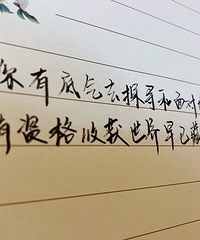 你有底气去探寻和面对
有资格收获世所早已